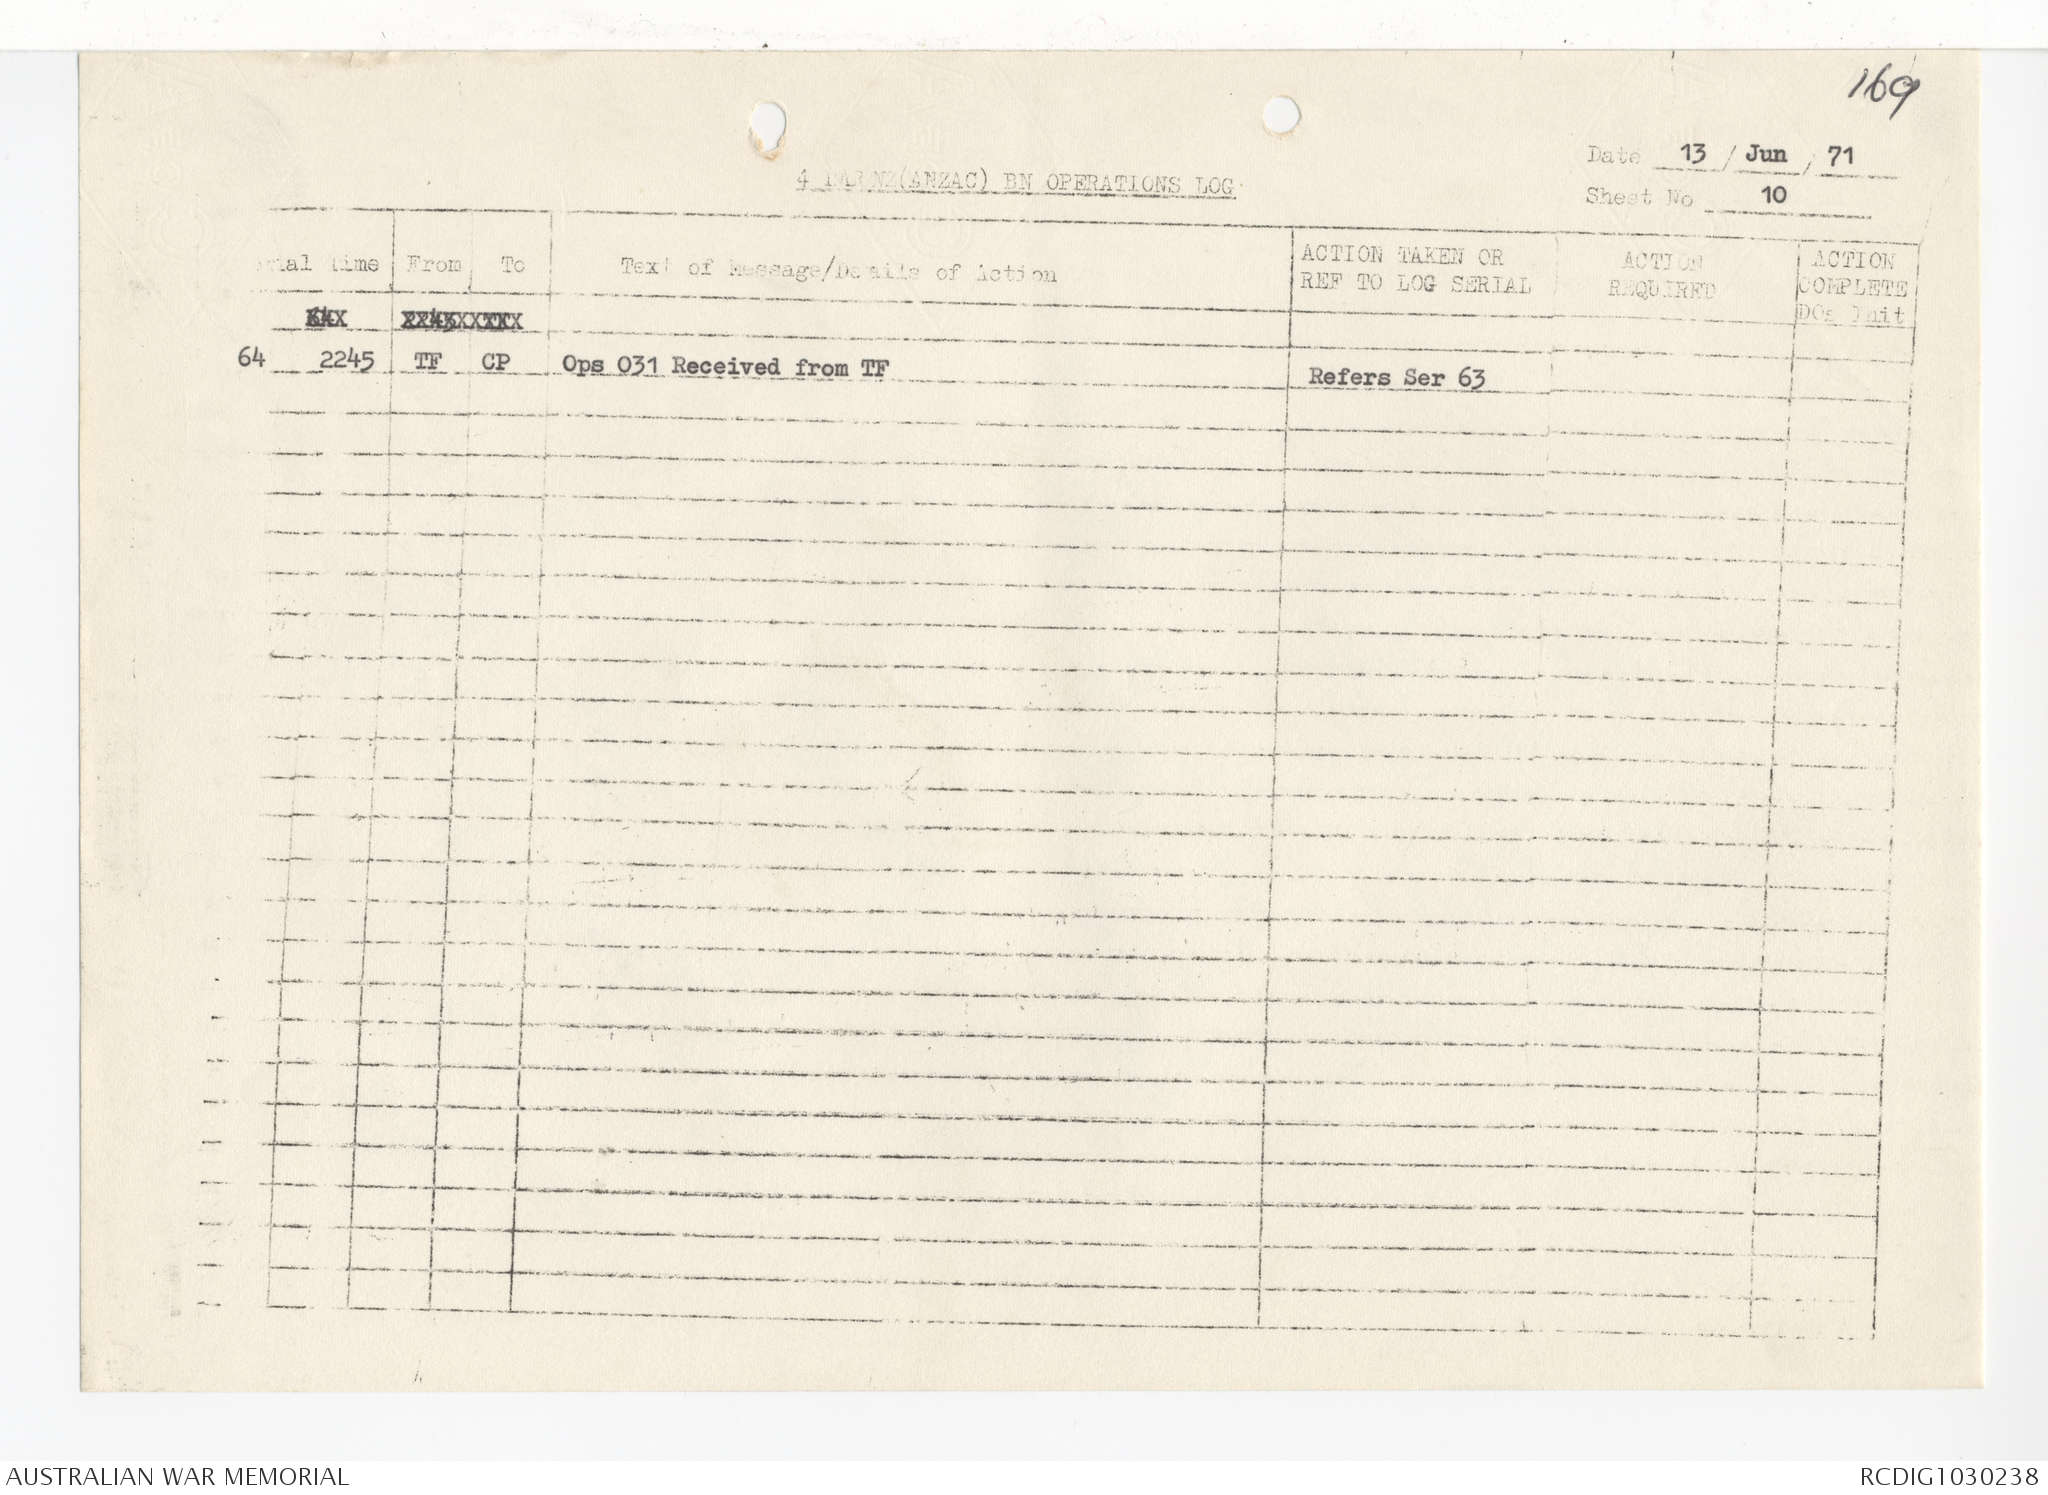 169
Date 13 / Jun / 71
4 RAR/NZ(ANZAC) BN OPERATIONS LOG
Sheet No 10
Serial Time From To Text of Message/Details of Action ACTION TAKEN OR REF TO LOG SERIAL ACTION REQUIRED ACTION COMPLETE DOs Init
64 2245 TF CP Ops 031 Received from TF Refers Ser 63
AUSTRALIAN WAR MEMORIAL
RCDIG1030238